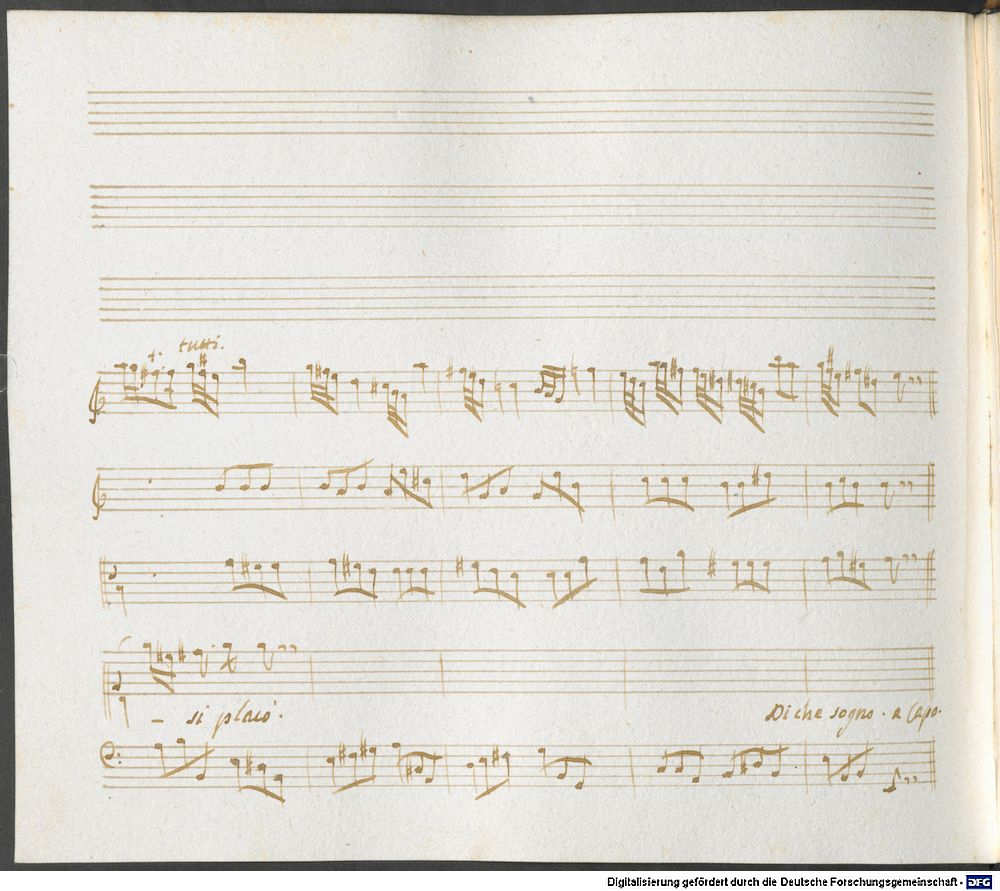 t. tutti.
si placò. Di che sogno. a Capo.
Digitalisierung gefördert durch die Deutsche Forschungsgemeinschaft - DFG